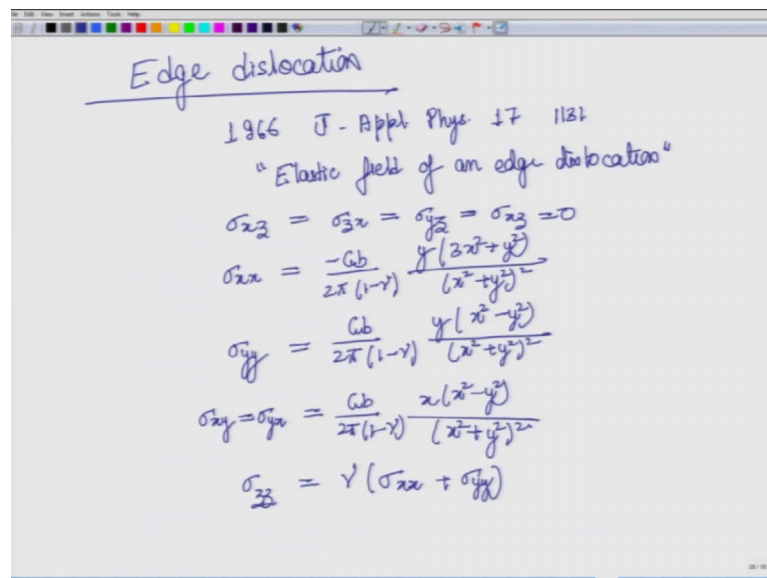 File Edit View Insert Actions Tools Help
Edge dislocation
1966 J. Appl Phys. 17 1131
"Elastic field of an edge dislocation"
σxz = σzx = σyz = σxz = 0
σxx = -Gb / 2π(1-ν) y(3x² + y²) / (x² + y²)²
σyy = Gb / 2π(1-ν) y(x² - y²) / (x² + y²)²
σxy = σyx = Gb / 2π(1-ν) x(x² - y²) / (x² + y²)²
σzz = ν(σxx + σyy)